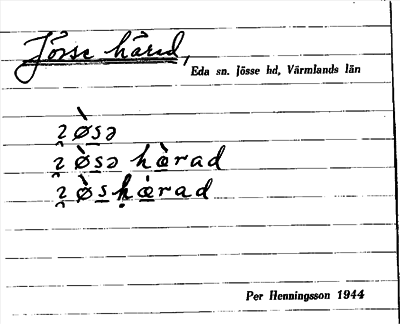 Jösse härad,
Eda sn. Jösse hd, Värmlands län
ɂ ø̀s̲ə
ɂ ø̀s̲ə hæ̀rad
ɂ ø̀s̲ ḥæ̲̀rad
Per Henningsson 1944